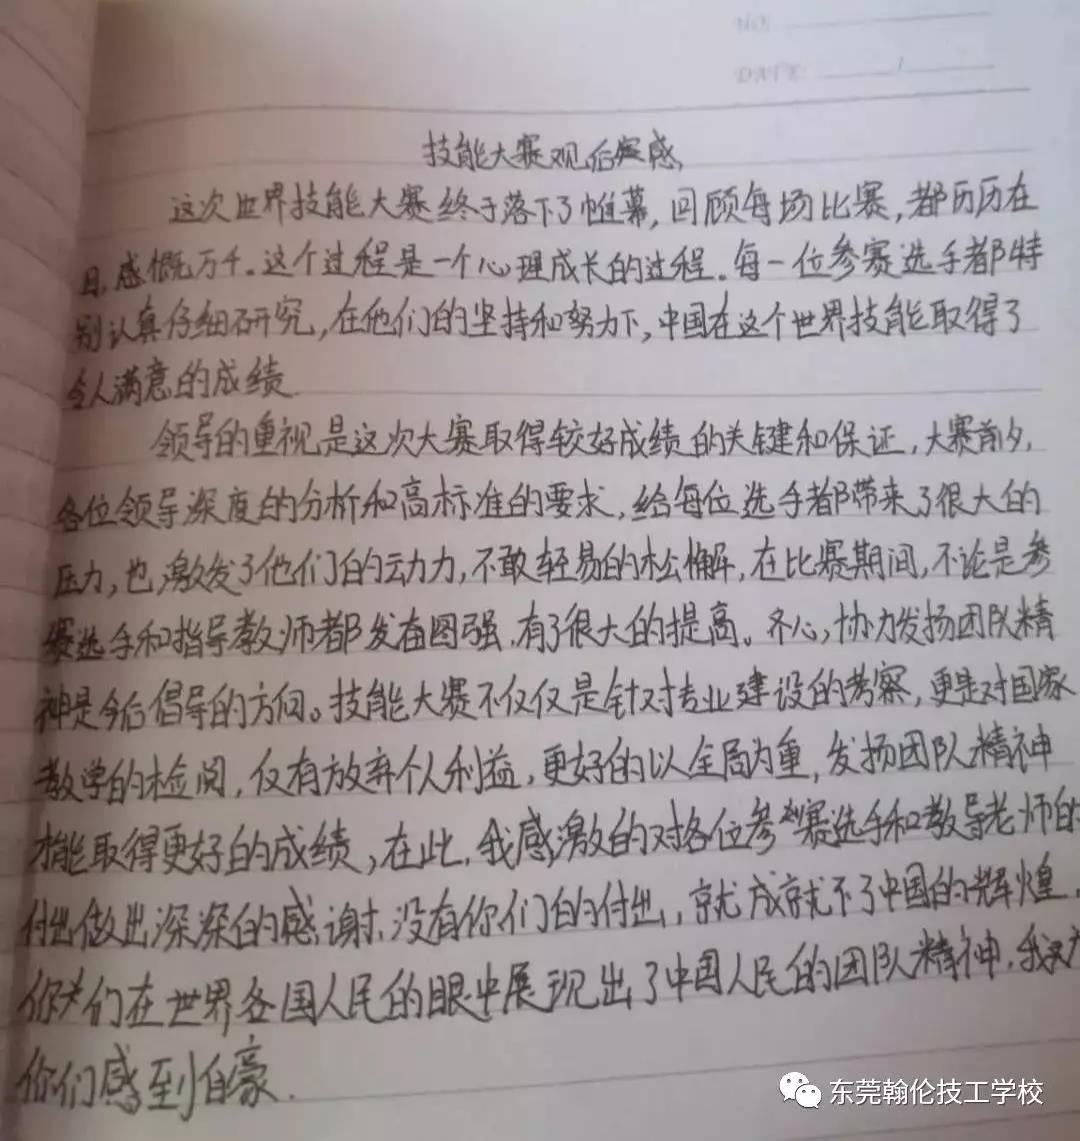 NO.
DATE: /
技能大赛观后感
这次世界技能大赛终于落下了帷幕,回顾每场比赛,都历历在
目,感慨万千。这个过程是一个心理成长的过程。每一位参赛选手都特
别认真仔细研究,在他们的坚持和努力下,中国在这个世界技能取得了
令人满意的成绩.
领导的重视是这次大赛取得较好成绩的关键和保证,大赛前夕,
各位领导深度的分析和高标准的要求,给每位选手都带来了很大的
压力,也激发了他们的动力,不敢轻易的松懈,在比赛期间,不论是参
赛选手和指导教师都发奋图强,有了很大的提高。齐心,协力发扬团队精
神是今后倡导的方向。技能大赛不仅仅是针对专业建设的考察,更是对国家
教学的检阅,仅有放弃个人利益,更好的以全局为重,发扬团队精神
才能取得更好的成绩,在此,我感激的对各位参赛选手和教导老师的
付出做出深深的感谢,没有你们的付出,就成就不了中国的辉煌,
你们在世界各国人民的眼中展现出了中国人民的团队精神,我为
你们感到自豪.
东莞翰伦技工学校